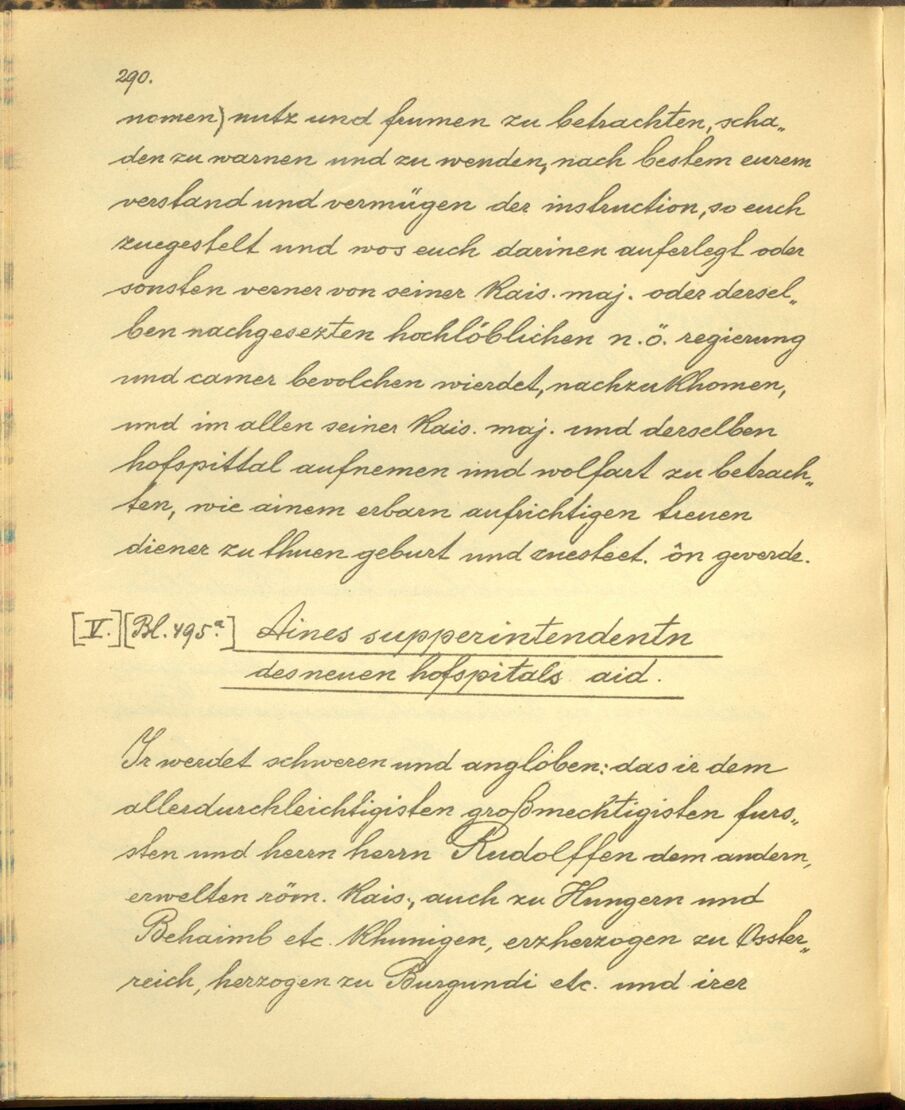 290.
nomen) nutz und frumen zu betrachten, scha„
den zu warnen und zu wenden, nach bestem eurem
verstand und vermügen der instruction, so euch
zuegestelt und wos euch darinen auferlegt oder
sonsten verner von seiner Kais. maj. oder dersel„
ben nachgesezten hochlöblichen n. ö. regierung
und camer bevolchen wierdet, nachzukhomen,
und im allen seiner Kais. maj. und derselben
hofspittal aufnemen und wolfart zu betrach„
ten, wie ainem erbarn aufrichtigen treuen
diener zu thuen geburt und zuesteet. ôn geverde.
[V.] [Bl. 495ª.] Aines supperintendentn
des neuen hofspitals aid.
Ir werdet schweren und anglöben: das ir dem
allerdurchleichtigisten großmechtigisten furs„
sten und herrn herrn Rudolffen dem andern,
erwelten röm. Kais., auch zu Hungern und
Behaimb etc. Khunigen, erzherzogen zu Osster„
reich, herzogen zu Burgundi etc. und irer